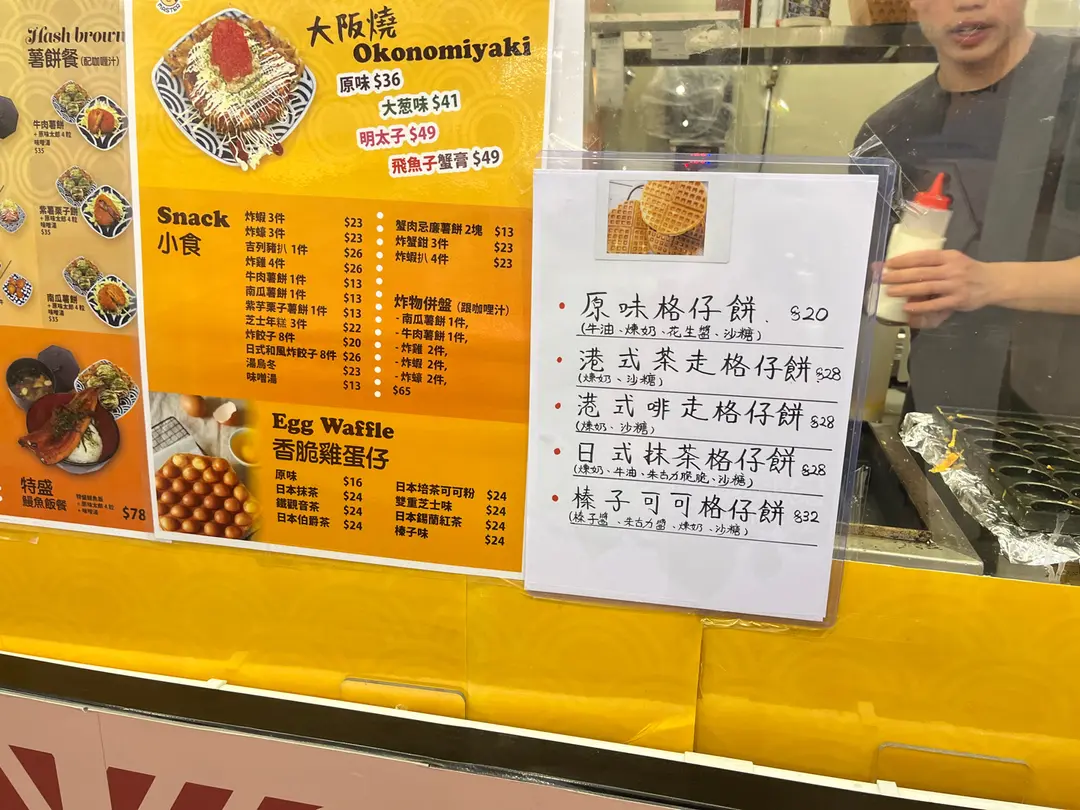 Hash brown
薯餅餐(配咖喱汁)
牛肉薯餅
+原味太郎4粒
味噌湯
$35
紫薯栗子餅
+原味太郎4粒
味噌湯
$35
南瓜薯餅
+原味太郎4粒
味噌湯
$35
特盛
鰻魚飯餐
+味噌湯
$78
大阪燒
Okonomiyaki
原味 $36
大葱味 $41
明太子 $49
飛魚子蟹膏 $49
Snack
小食
炸蝦 3件 $23
炸蠔 3件 $23
吉列豬扒 1件 $26
炸雞 4件 $26
牛肉薯餅 1件 $13
南瓜薯餅 1件 $13
紫芋栗子薯餅 1件 $13
芝士年糕 3件 $22
炸餃子 8件 $20
日式和風炸餃子 8件 $26
湯烏冬 $23
味噌湯 $13
蟹肉忌廉薯餅 2塊 $13
炸蟹鉗 3件 $23
炸蝦扒 4件 $23
炸物併盤(跟咖哩汁)
- 南瓜薯餅 1件,
- 牛肉薯餅 1件,
- 炸雞 2件,
- 炸蝦 2件,
- 炸蠔 2件,
$65
Egg Waffle
香脆雞蛋仔
原味 $16
日本抹茶 $24
鐵觀音茶 $24
日本伯爵茶 $24
日本培茶可可粉 $24
雙重芝士味 $24
日本錫蘭紅茶 $24
榛子味 $24
• 原味格仔餅. $20
(牛油、煉奶、花生醬、沙糖)
• 港式茶走格仔餅 $28
(煉奶、沙糖)
• 港式啡走格仔餅 $28
(煉奶、沙糖)
• 日式抹茶格仔餅 $28
(煉奶、牛油、朱古力脆脆、沙糖)
• 榛子可可格仔餅 $32
(榛子醬、朱古力醬、煉奶、沙糖)